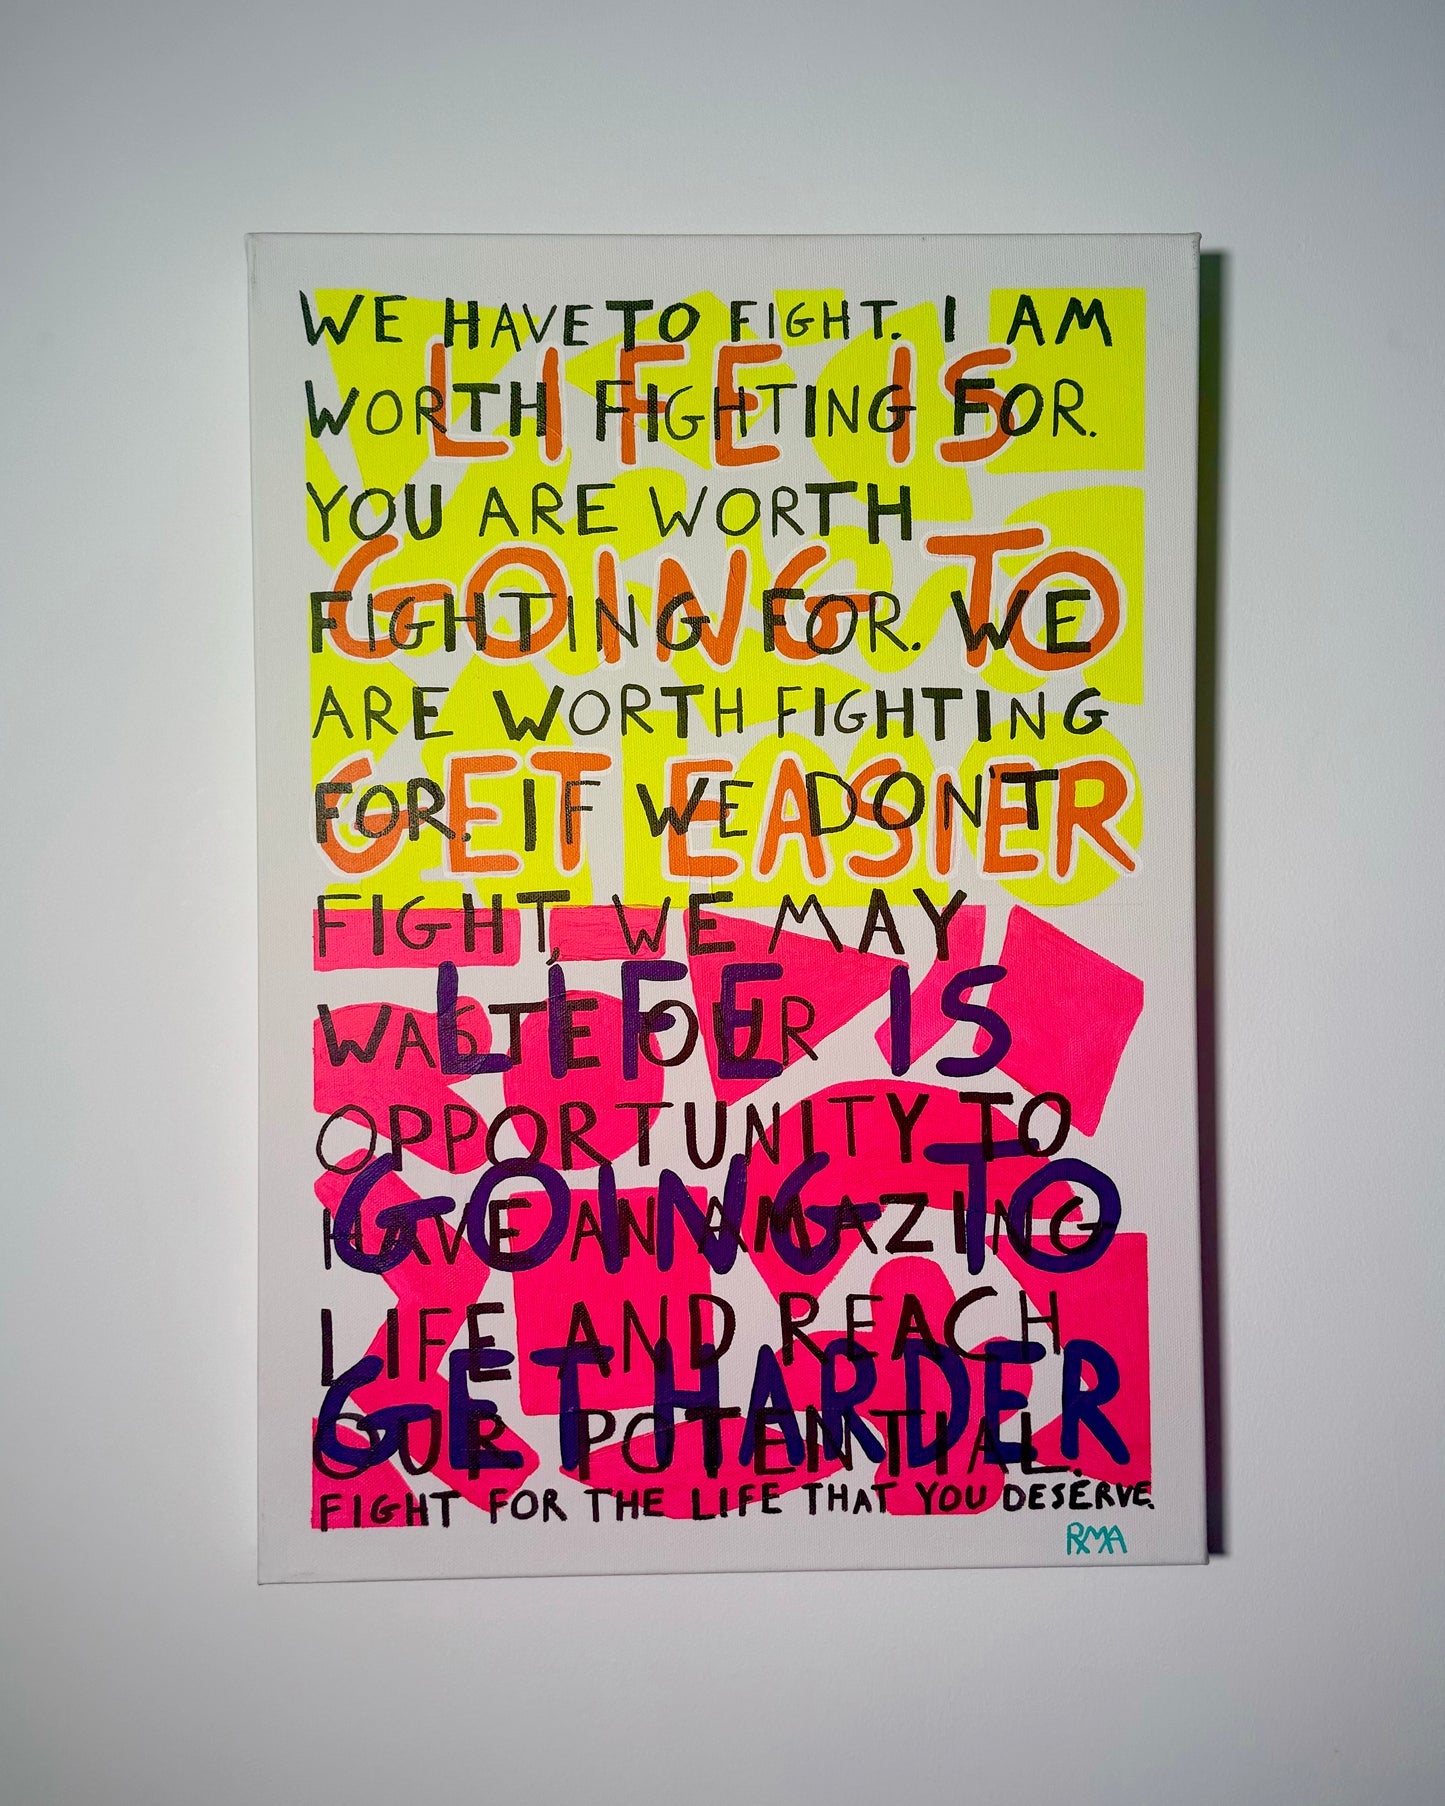 WE HAVE TO FIGHT. I AM
LIFE IS
WORTH FIGHTING FOR.
YOU ARE WORTH
GOING TO
FIGHTING FOR. WE
ARE WORTH FIGHTING
GET EASIER
FOR. IF WE DON'T
FIGHT, WE MAY
LIFE IS
WASTE OUR
OPPORTUNITY TO
GOING TO
HAVE AN AMAZING
LIFE AND REACH
GET HARDER
OUR POTENTIAL.
FIGHT FOR THE LIFE THAT YOU DESERVE.
RMA